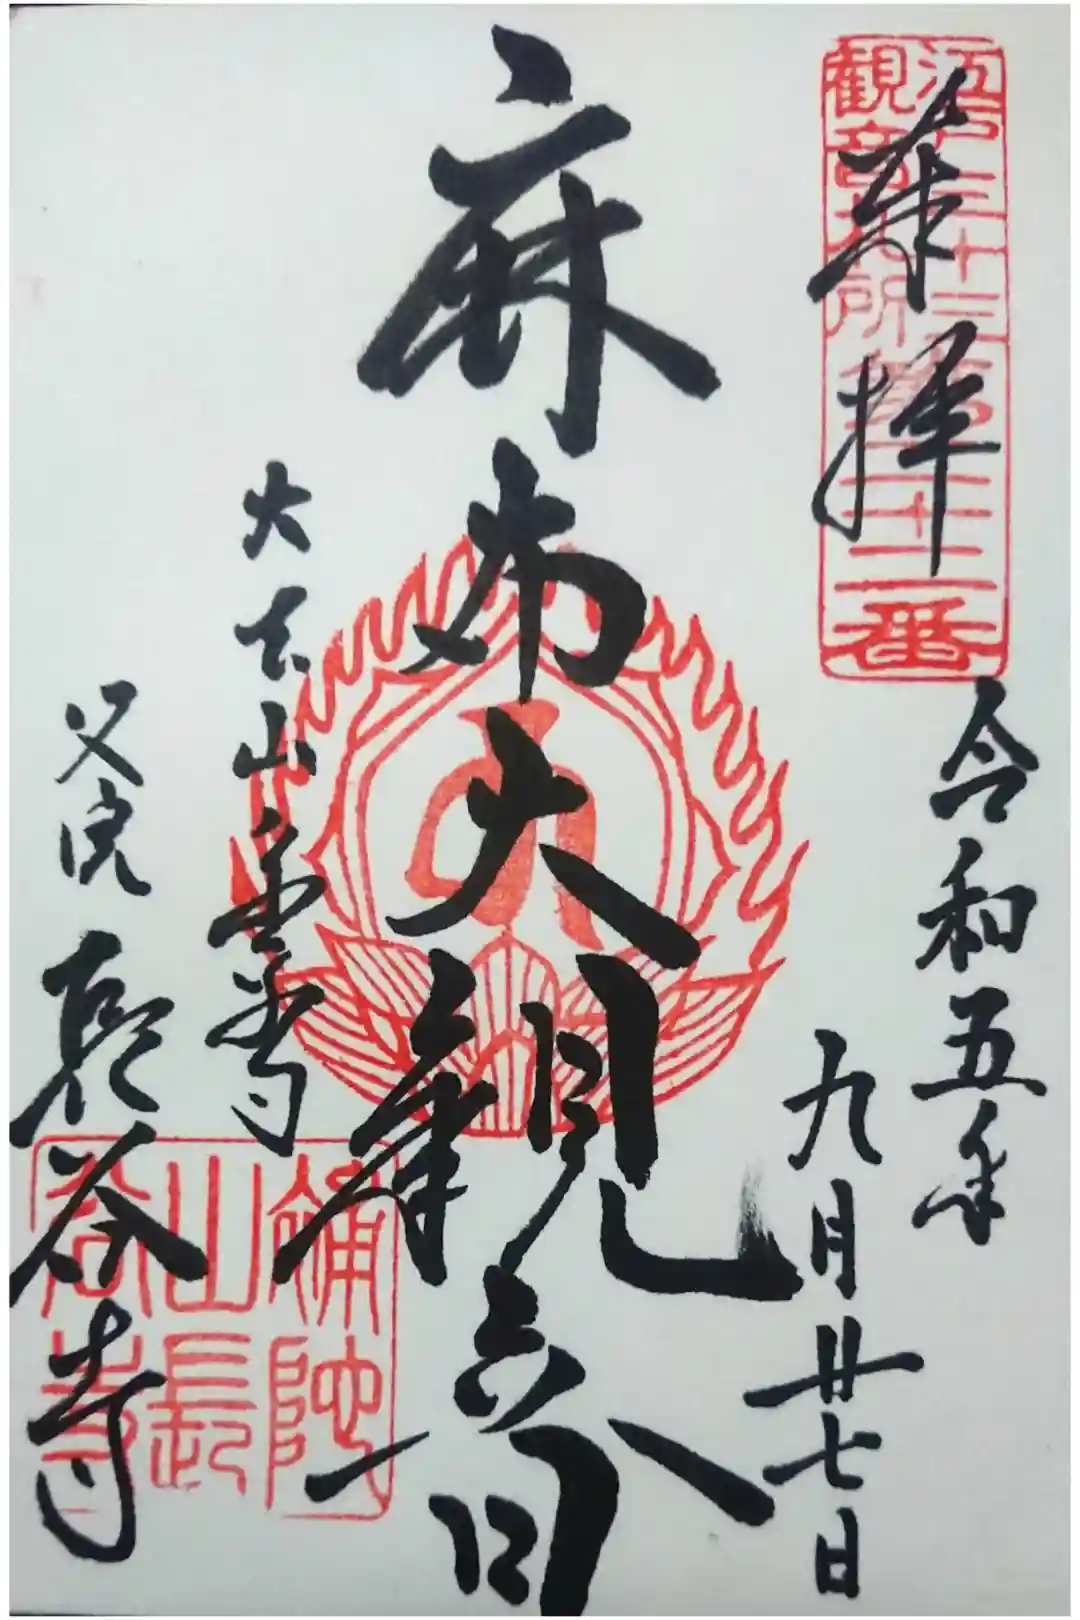 江戸三十三
観音札所
第二十二番
奉拝
令和五年
九月廿七日
麻布大観音
大本山永平寺
別院 長谷寺
補陀
山長
谷寺